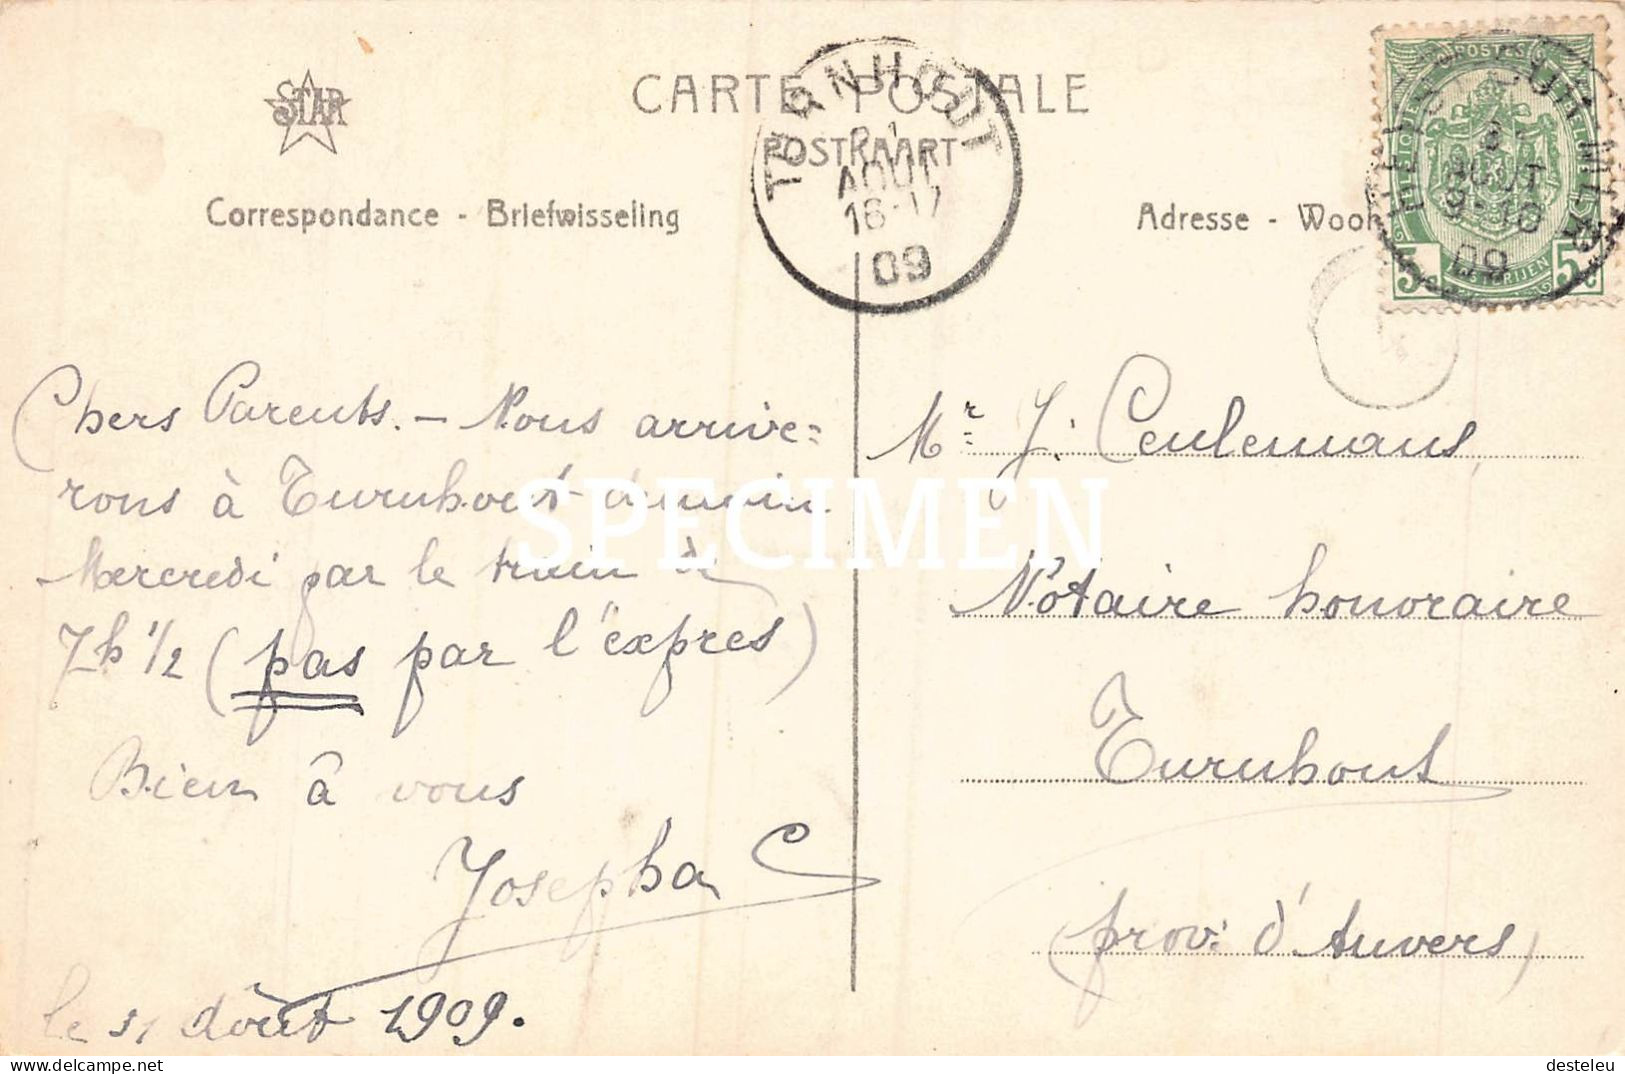 STAR
CARTE POSTALE
POSTKAART
Correspondance - Briefwisseling
Adresse - Woon
TURNHOUT
AOUT
16-17
09
POSTES
AOUT
9-10
09
5 POSTERIJEN 5
Chers Parents. — Nous arrive=
rons à Turnhout demain
Mercredi par le train de
7h 1/2 (pas par l'expres)
Bien à vous
Josepha C
le 31 Août 1909.
Mr J. Ceulemans,
Notaire honoraire
Turnhout
(prov: d'Anvers)
SPECIMEN
desteleu